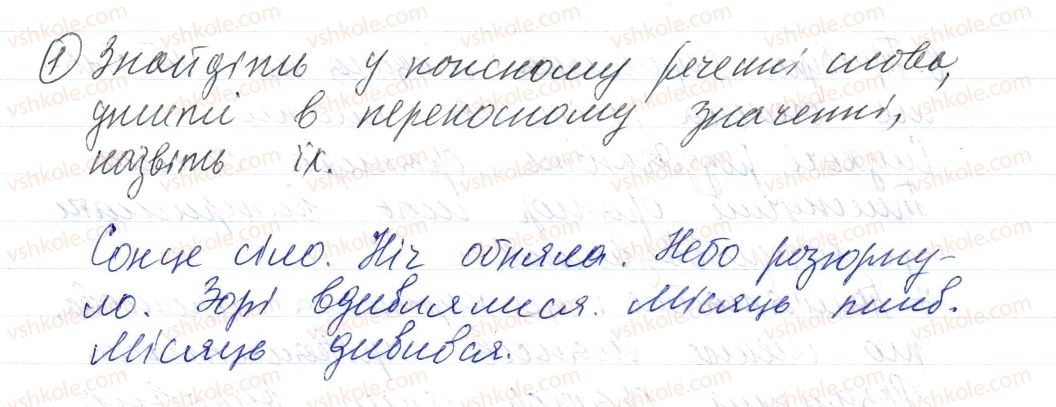 1 Знайдіть у кожному реченні слова,
ужиті в переносному значенні,
назвіть їх.
Сонце сіло. Ніч обняла. Небо розгорну-
ло. Зорі вдивлялися. Місяць плив.
Місяць дивився.